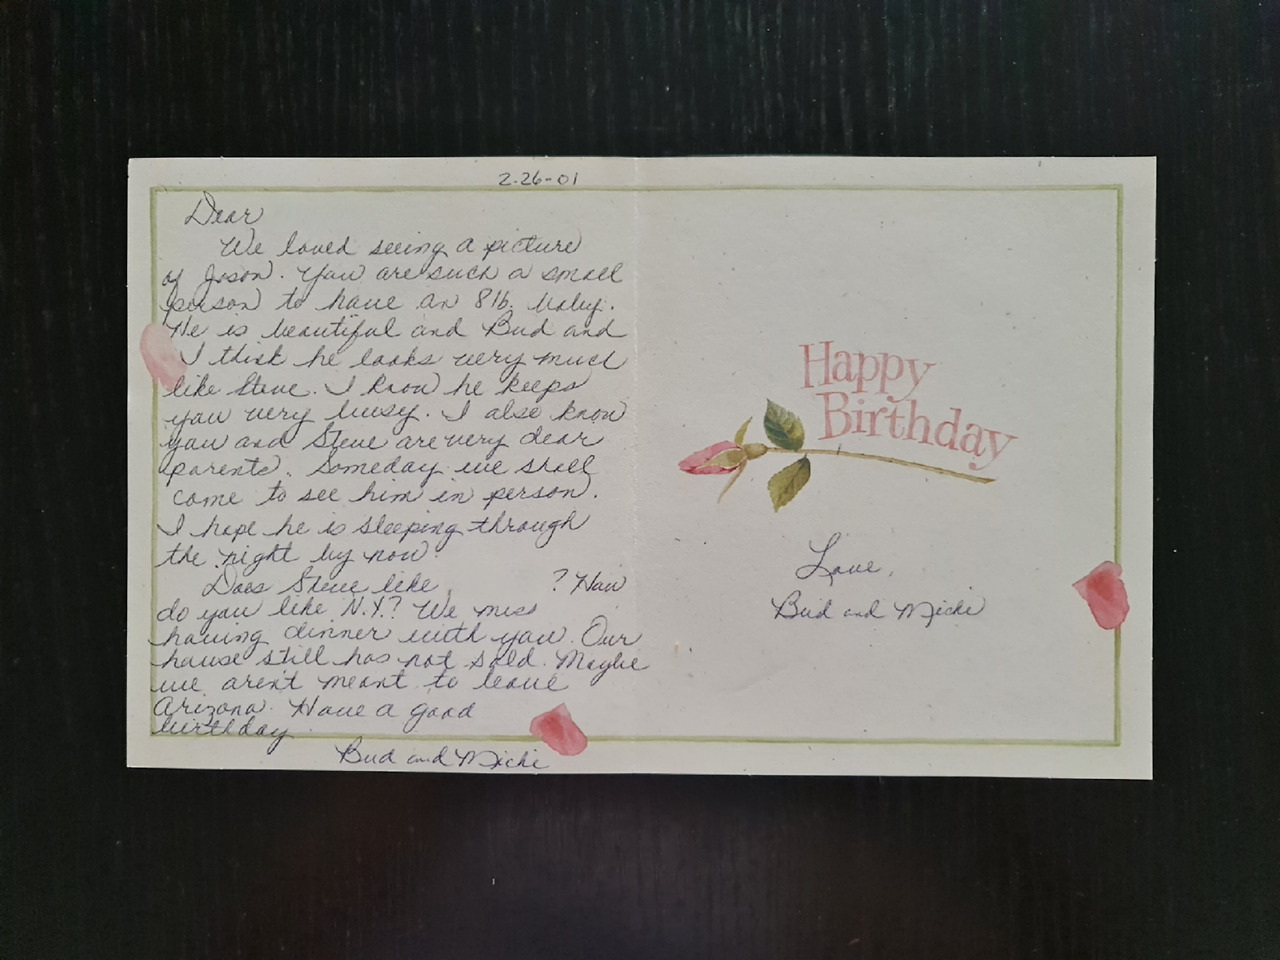 2-26-01
Dear
We loved seeing a picture
of Jason. You are such a small
person to have an 8lb. baby.
He is beautiful and Bud and
I think he looks very much
like Steve. I know he keeps
you very busy. I also know
you and Steve are very dear
parents. Someday we shall
come to see him in person.
I hope he is sleeping through
the night by now.
Does Steve like ? How
do you like N.Y.? We miss
having dinner with you. Our
house still has not sold. Maybe
we aren't meant to leave
Arizona. Have a good
birthday
Bud and Micki
Happy
Birthday
Love,
Bud and Micki